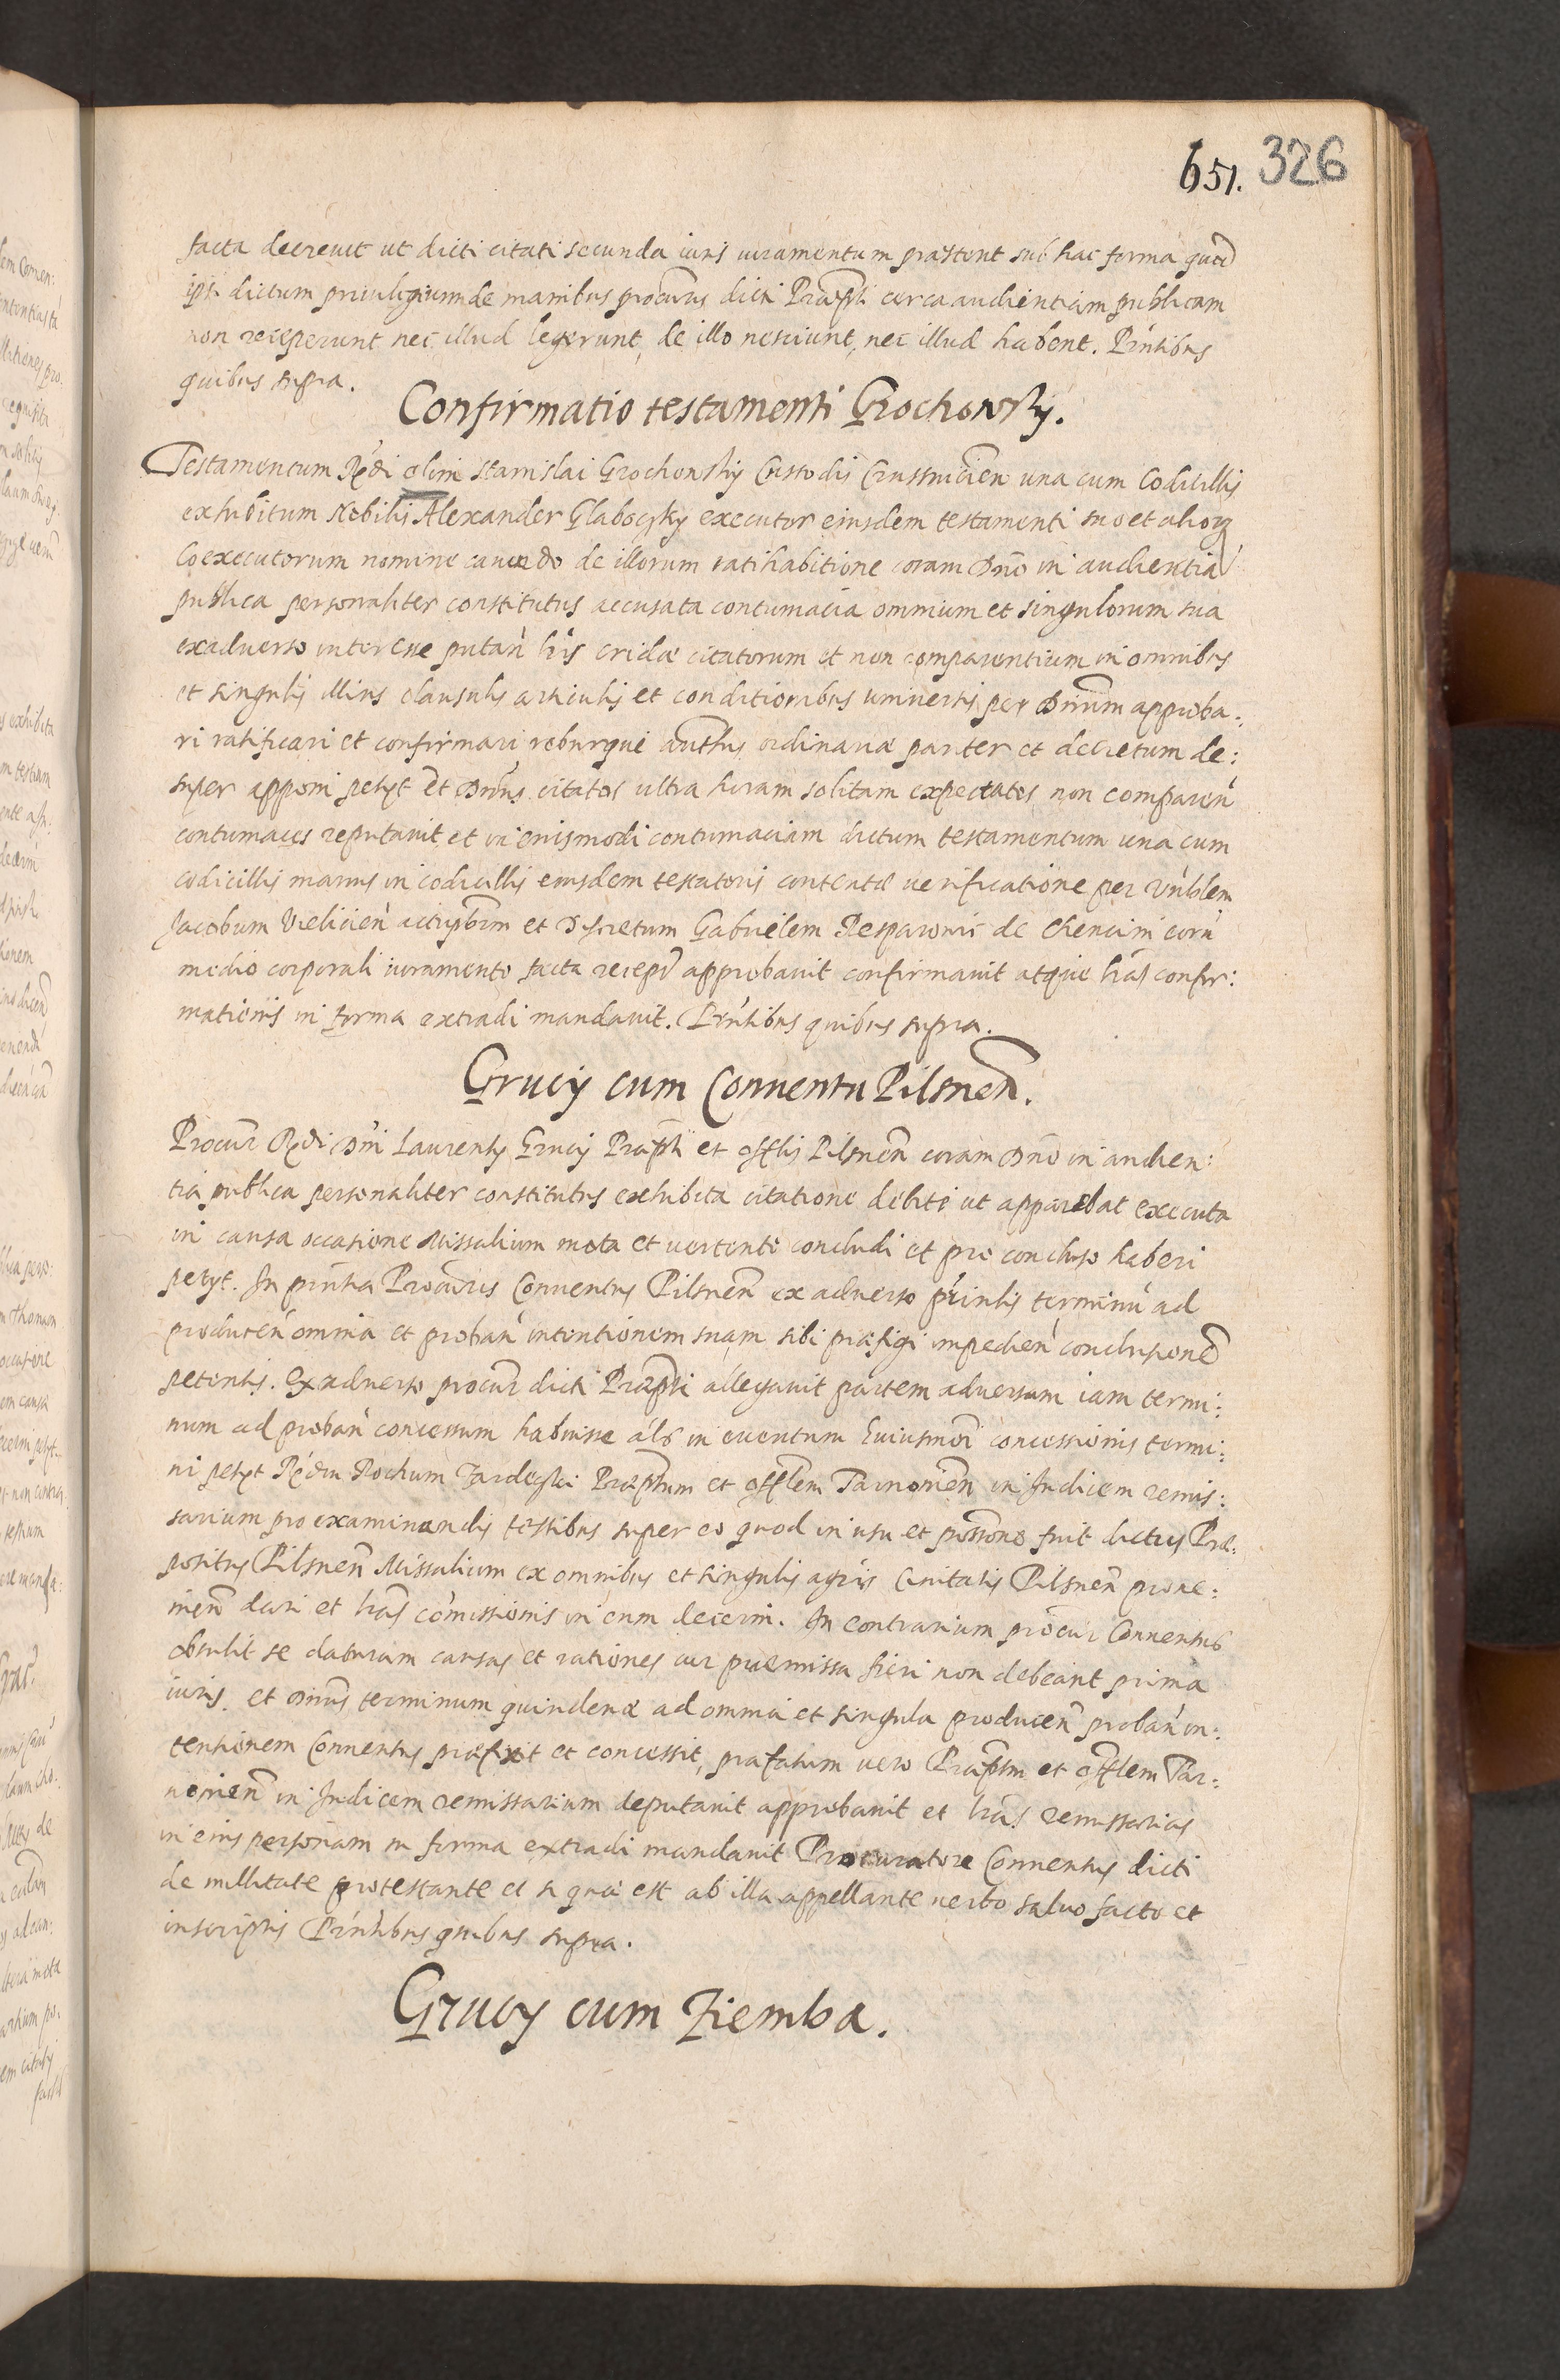 651. 326
facta decreuit ut dicti citati secunda iuris iuramentum præstent sub hac forma quod
ipsi dictum priuilegium de manibus procuris dicti Præpti circa audientiam publicam
non receperunt nec illud legerunt, de illo nesciunt, nec illud habent. Pntibus
quibus supra.
Confirmatio testamenti Grochowsky.
Testamentum Rdi olim Stanislai Grochowsky Custodis Crusuicien una cum Codicillis
exhibitum Nobilis Alexander Glaboczky executor eiusdem testamenti suo et alioru
Coexecutorum nomine cauendo de illorum ratihabitione coram Dno in audientia
publica personaliter constitutus accusata contumacia omnium et singulorum sua
ex aduerso interesse putan lris cridæ citatorum et non comparentium in omnibus
et singulis illius clausulis articulis et conditionibus uniuersis per Dnum approba:
ri ratificari et confirmari roburque autthis ordinariæ pariter et decretum de:
super apponi petyt Et Dnus citatos ultra horam solitam expectatos non comparen
contumaces reputauit et in eiusmodi contumaciam dictum testamentum una cum
codicillis manus in codicillis eiusdem testatoris contentæ uerificatione per Vnblem
Jacobum Vielicien actuum et Discretum Gabrielem de Chencini coru
medio corporali iuramento facta recepta approbauit confirmauit atque lras confir:
mationis in forma extradi mandauit. Pntibus quibus supra.
Grucy cum Conuentu Pilsnen.
Procur Rdi Dni Laurenty Grucy Præpti et offlis Pilsnen coram Dno in audien:
tia publica personaliter constitutus exhibita citatione debite ut apparebat executa
in causa occasione Missalium mota et uertente concludi et pro concluso haberi
petyt. In pntia Procuris Conuentus Pilsnen ex aduerso pntis terminu ad
producen omnia et proban intentionem suam sibi præfigi impedien conclusione
petentis. Ex aduerso procur dicti Præpti allegauit partem aduersam iam termi:
num ad proban concessum habuisse als in euentum huiusmodi concessionis termi:
ni petyt Rdu Rochum Præptum et offlem Tarnouien in Judicem remis:
sarium pro examinandis testibus super eo quod in usu et possone fuit dictus Præ:
positus Pilsnen Missalium ex omnibus et singulis agris Ciuitatis Pilsnen proue:
nien dari et lras comissionis in eum decerni. In contrarium procur Conuentus
obtulit se daturum causas et rationes cur præmissa fieri non debeant prima
iuris. Et Dnus terminum quindenæ ad omnia et singula producen proban in:
tentionem Conuentus præfixit et concessit, præfatum uero Præptm et offlem Tar:
nouien in Judicem remissarium deputauit approbauit et lras remissorias
in eius personam in forma extradi mandauit Procuratore Conuentus dicti
de nullitate protestante et si qua est ab illa appellante uerbo saluo facto et
inscriptis Pntibus quibus supra.
Grucy cum Ziemba.